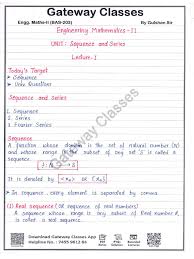 Gateway Classes
Engg. Maths-II (BAS-203) By Gulshan Sir
Engineering Mathematics-II
UNIT: Sequence and Series
Lecture-1
Today's Target
Sequence
Univ Questions
Sequence and Series
1. Sequence
2. Series
3. Fourier Series
Sequence
A function whose domain is the set of natural number (N)
and whose range is the subset of any set S is called a
sequence.
f: N → S
It is denoted by <xₙ> or {xₙ}
In sequence every element is separated by comma
(1) Real sequence
A sequence whose range is any subset of Real number R,
is called a real sequence.
Gateway Classes
Download Gateway Classes App
Helpline No. : 7455 9612 84